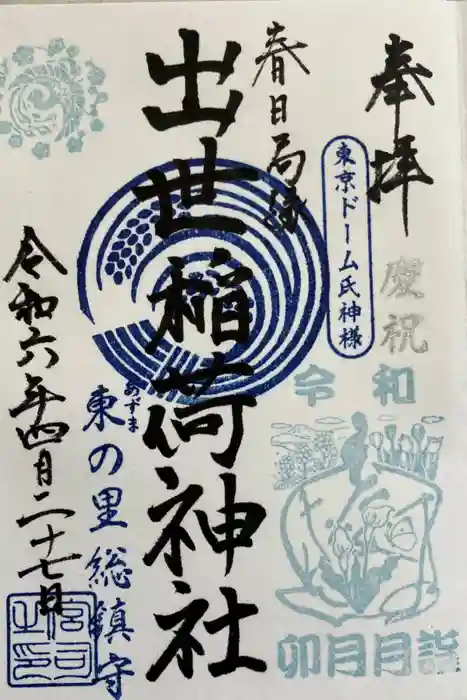 奉拝
慶祝
春日局縁
東京ドーム氏神様
令和
卯月月詣
出世稲荷神社
あずま
東の里総鎮守
令和六年四月二十七日
宮司之印